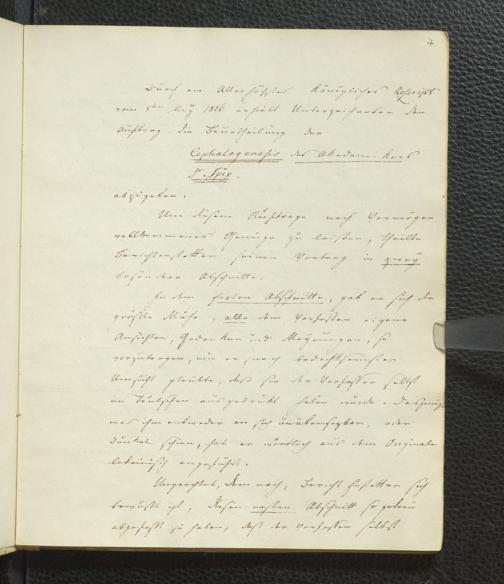 7
Durch ein Allerhöchstes Königliches Rescript
vom 8ten May 1816 erhielt Unterzeichneter den
Auftrag die Beurtheilung der
Cephalogenesis des Akademikers
D. Spix.
abzugeben.
Um diesem Auftrage nach Vermögen
vollkommenes Genüge zu leisten, theilte
Berichterstatter seinen Vortrag in zwey
besondere Abschnitte.
In dem ersten Abschnitte, gab er sich die
größte Mühe, alle dem Verfasser eigene
Ansichten, Gedanken und Meynungen, so
vorzutragen, wie er, nach
Umsicht glaubte, daß sie der Verfasser selbst
im Teutschen ausgedrückt haben würde. Dasjenige
was ihm entweder an sich unübersetzbar, oder
dunkel schien, hat er wörtlich aus dem Originale
lateinisch angeführt.
Ungeachtet, dem nach, Berichterstatter sich
bewußt ist, diesen ersten Abschnitt so getreu
abgefaßt zu haben, daß der Verfasser selbst